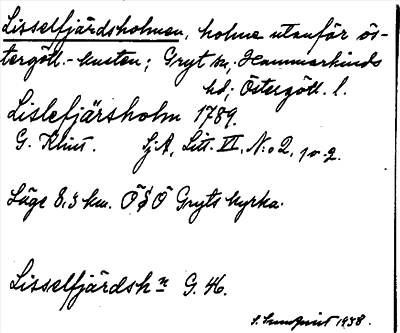 Lisselfjärdsholmen, holme utanför ös-
tergötl.-kusten; Gryt sn, Hammarkinds
hd; Östergötl. l.
Lislefjärsholm 1789.
G. Klint. Sj.A. Litt. VI, N:o 2, 
Läge 8,3 km. ÖSÖ Gryts kyrka.
Lisselfjärdsh:n G. 46.
S. Sundqvist 1938.